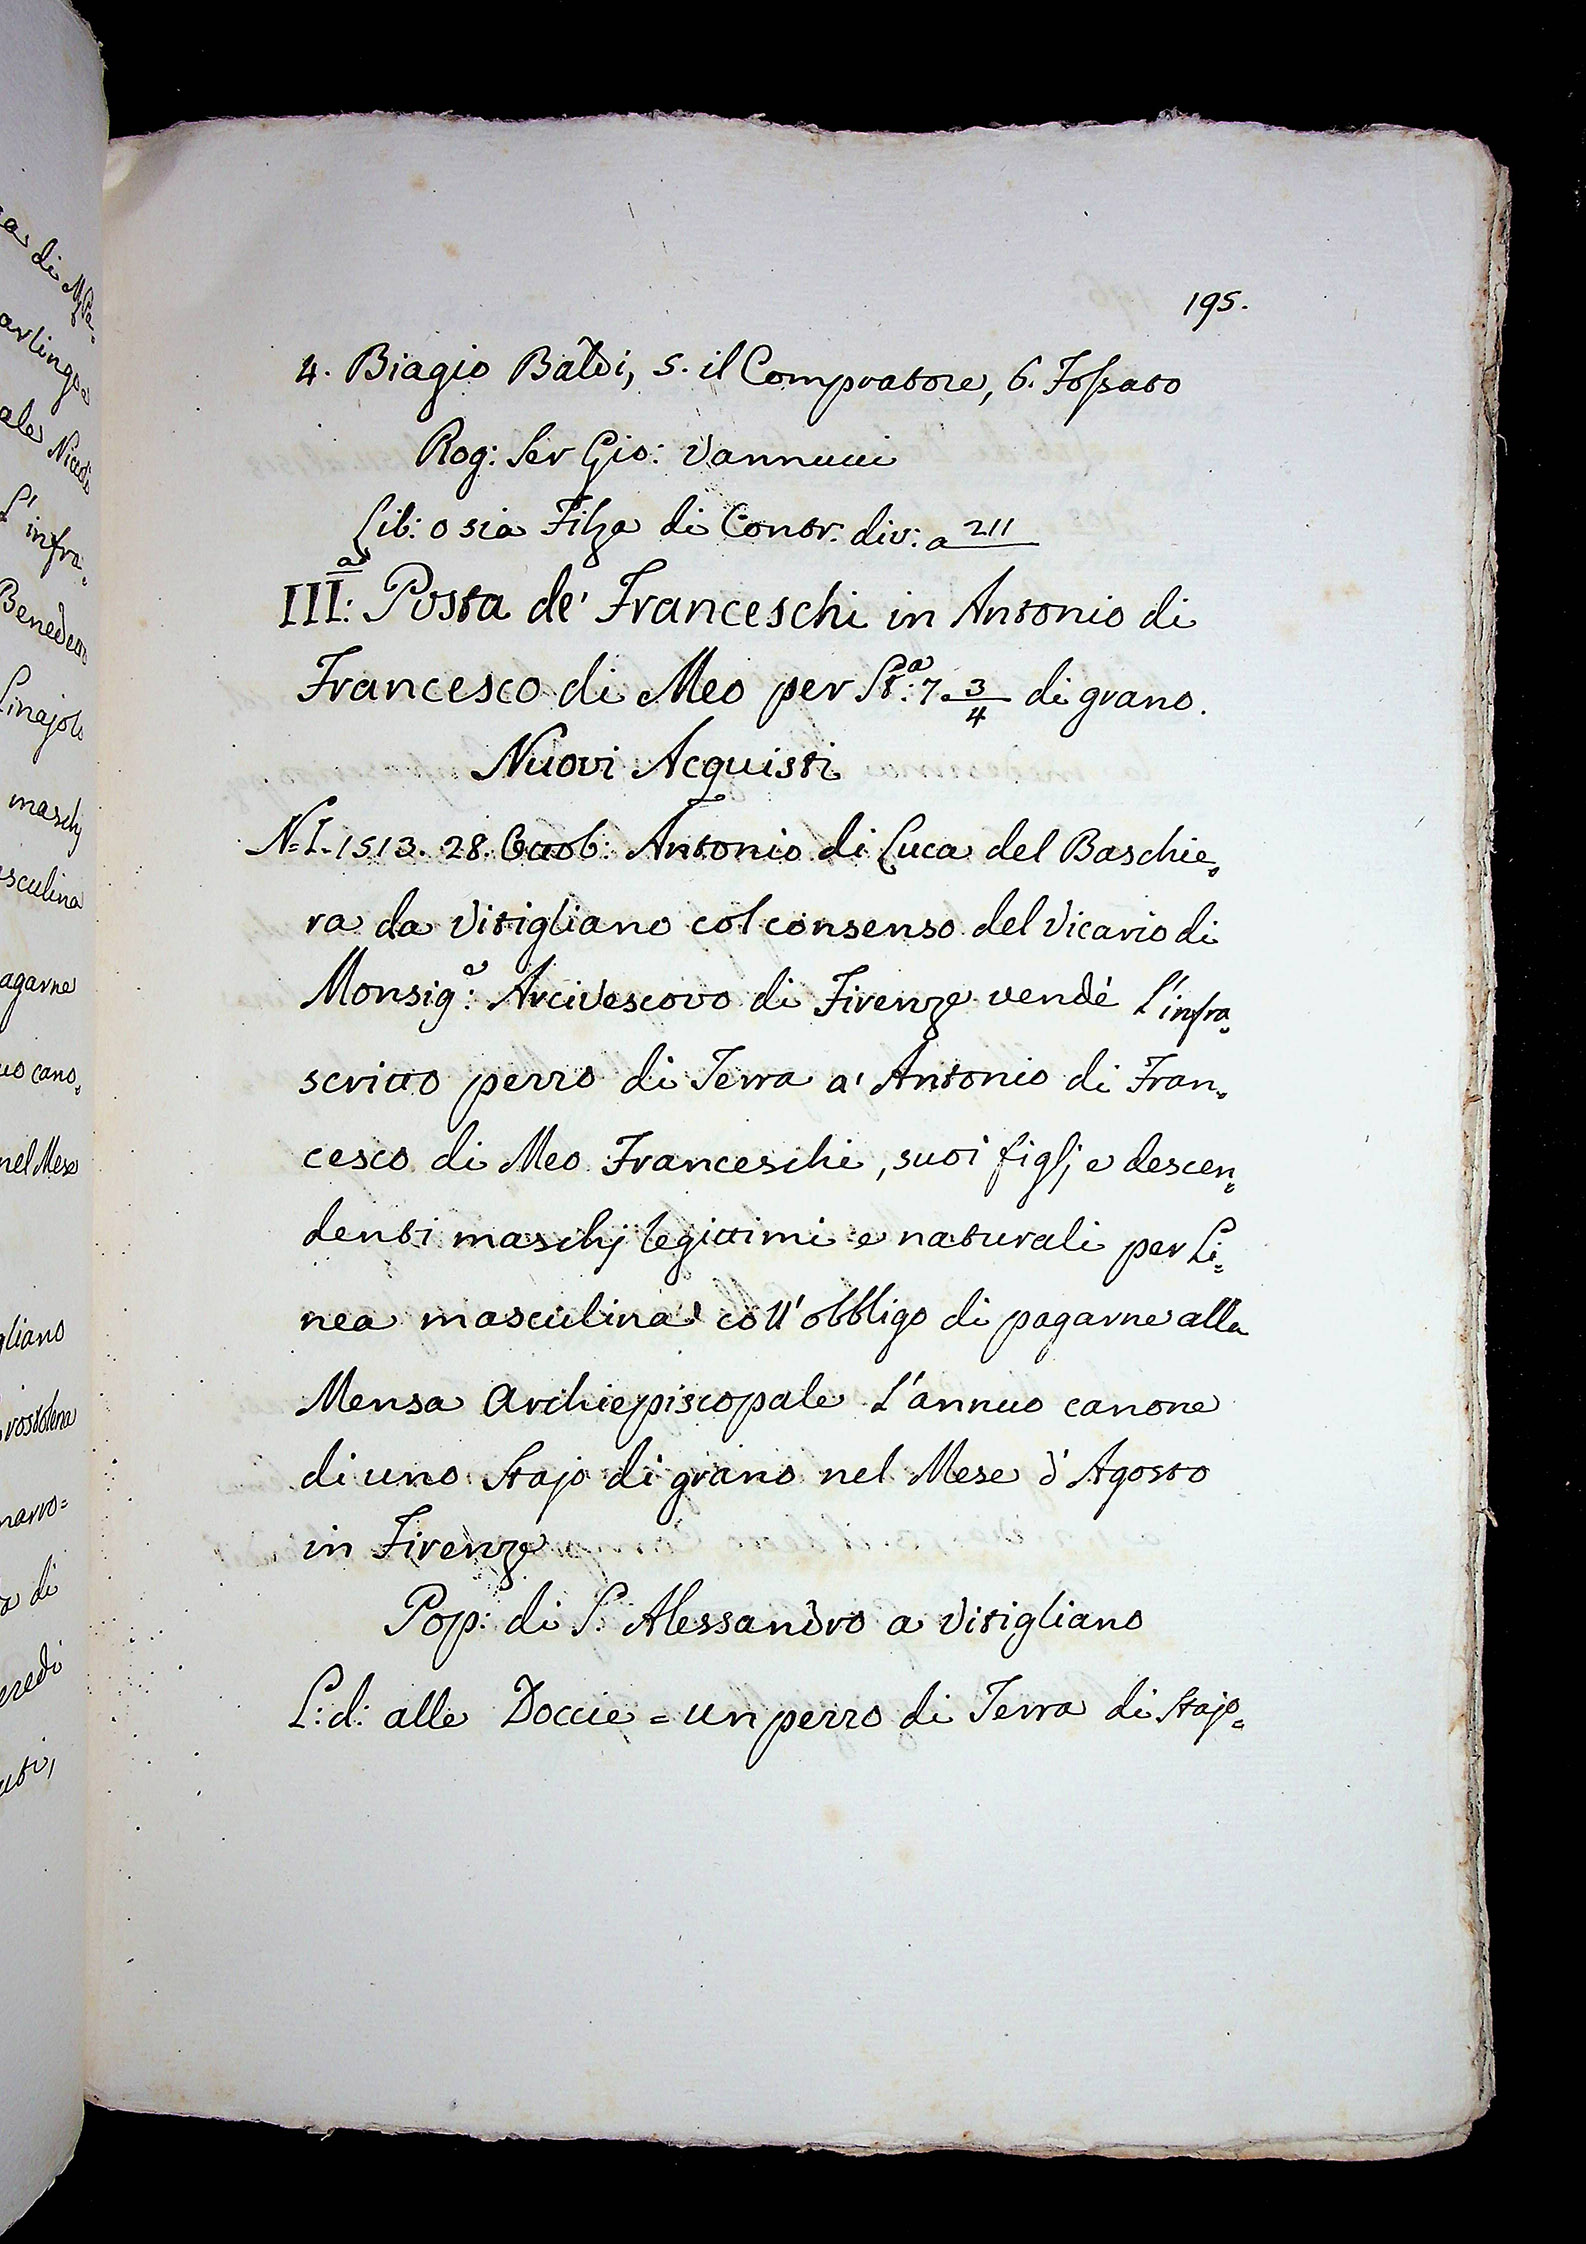 195.
4. Biagio Baldi, 5. il Compratore, 6. Fossato
Rog: Ser Gio: Vannucci
Lib: o sia Filza di Contr: div: a 211
III.a Posta de' Franceschi in Antonio di
Francesco di Meo per St.a: 7 3/4 di grano.
Nuovi Acquisti
N=I. 1513. 28. Ottob: Antonio di Luca del Baschie=
ra da Vitigliano col consenso del Vicario di
Monsig.e: Arcivescovo di Firenze vendè l'infra=
scritto pezzo di Terra a' Antonio di Fran=
cesco di Meo Franceschi, suoi figlj e descen=
denti maschj legittimi e naturali per Li=
nea masculina coll'obbligo di pagarne alla
Mensa Archiepiscopale l'annuo canone
di uno Stajo di grano nel Mese d'Agosto
in Firenze
Pop: di S. Alessandro a Vitigliano
L: d: alle Doccie = un pezzo di Terra di Stajo=